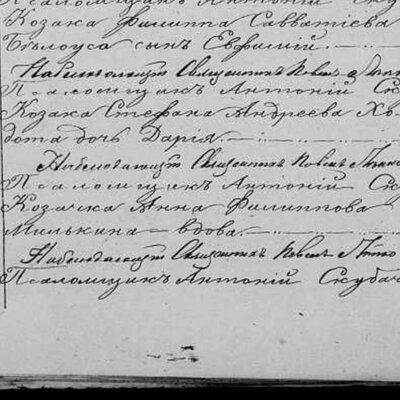 Псаломщикъ Антоній Скуб
Козака Филиппа Савватіева
Бѣлоуса сынъ Евфимій.
Наблюдающій Священникъ
Псаломщикъ Антоній Ск
Козака Стефана Андреева Хо-
дота дочь Дарія.
Наблюдающій Священникъ
Псаломщикъ Антоній Ск
Козачка Анна Филиппова
Милькина – вдова.
Наблюдающій Священникъ
Псаломщикъ Антоній Скубач